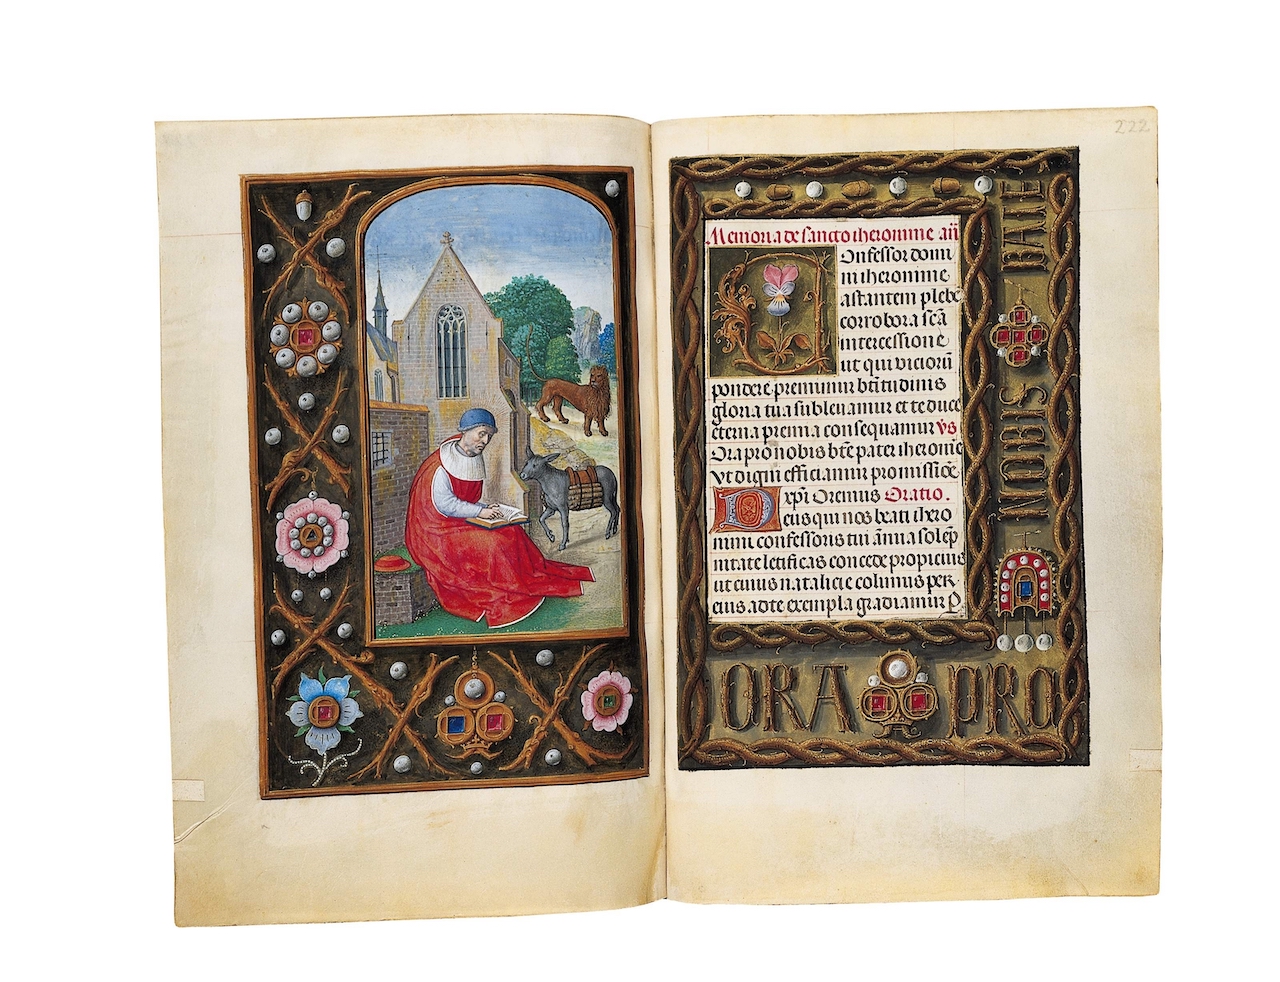 222
Memoria de sancto iheronime añ
Onfessor domi
ni iheronime
astantem plebē
corrobora scā
intercessione
ut qui vicioru̅
pondere premimur bt̄itudinis
gloria tua subleuamur et te duce
eterna premia consequamur v̄s
Ora pro nobis bt̄e pater iheronie
Vt digni efficiamur promissiōe
xp̄i Oremus Oratio.
Deus qui nos beati ihero
nimi confessoris tui annua solep̄
nitate letificas concede propicius
ut cuius natalicie colimus per
eius ad te exempla gradiamur P
ORA PRO
NOBIS BATE